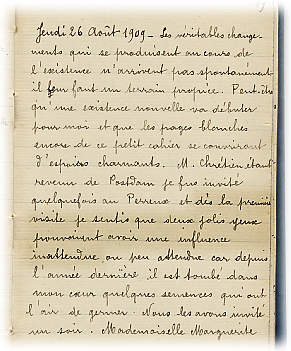 Jeudi 26 Août 1909 - Les véritables change-
ments qui se produisent au cours de
l'existence n'arrivent pas spontanément
il faut un terrain propice. Peut-être
qu'une existence nouvelle va débuter
pour moi et que les pages blanches
encore de ce petit cahier se couvriront
d'espoirs charmants. M. Chrétien étant
revenu de Postdam je fus invité
quelquefois au Perreux et dès la première
visite je sentis que deux jolis yeux
pouvaient avoir une influence
inattendue ou peu attendue car depuis
l'année dernière il est tombé dans
mon cœur quelques semences qui ont
l'air de germer. Nous les avons invité
un soir. Mademoiselle Marguerite